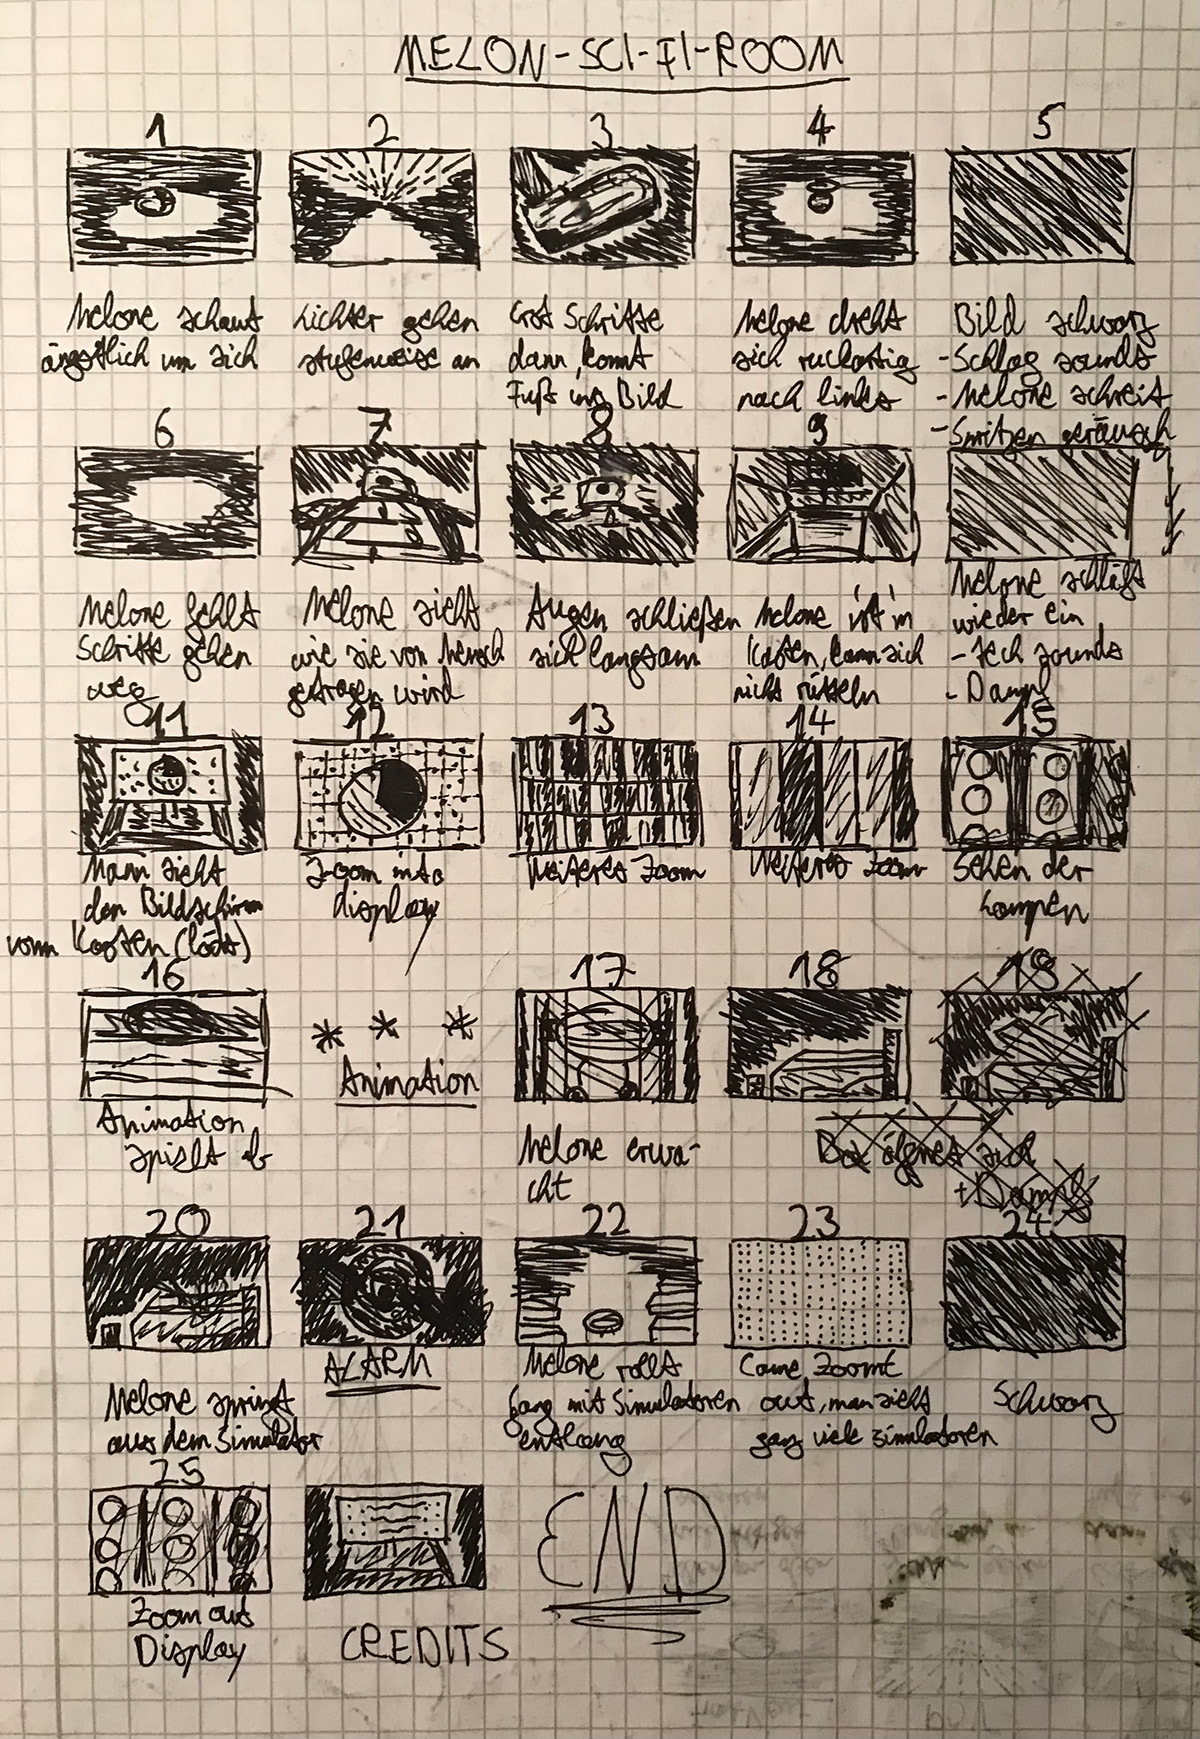 MELON-SCI-FI-ROOM
1 2 3 4 5
Melone schaut
ängstlich um sich
Lichter gehen
stufenweise an
Erst Schritte
dann kommt
Fuß ins Bild
Melone dreht
sich ruckartig
nach links
Bild schwarz
- Schlag sounds
- Melone schreit
- Spritzen geräusch
6 7 8 9
Melone fehlt
Schritte gehen
weg
Melone sieht
wie sie von Mensch
getragen wird
Augen schließen
sich langsam
Melone ist in
Kasten, kann sich
nicht rütteln
Melone schläft
wieder ein
- Tech sounds
- Dampf
11 12 13 14 15
Mann sieht
den Bildschirm
vom Kasten (lädt)
Zoom into
display
Weiteres Zoom
Weiteres Zoom
Sehen der
Lampen
16 17 18 19
Animation
spielt ab
* * *
Animation
Melone erwa-
cht
öffnet sich
+ Dampf
20 21 22 23 24
Melone springt
aus dem Simulator
ALARM
Melone rollt
Gang mit Simulatoren
entlang
Came Zoomt
out, man sieht
ganz viele Simulatoren
Schwarz
25
Zoom out
Display
CREDITS
END